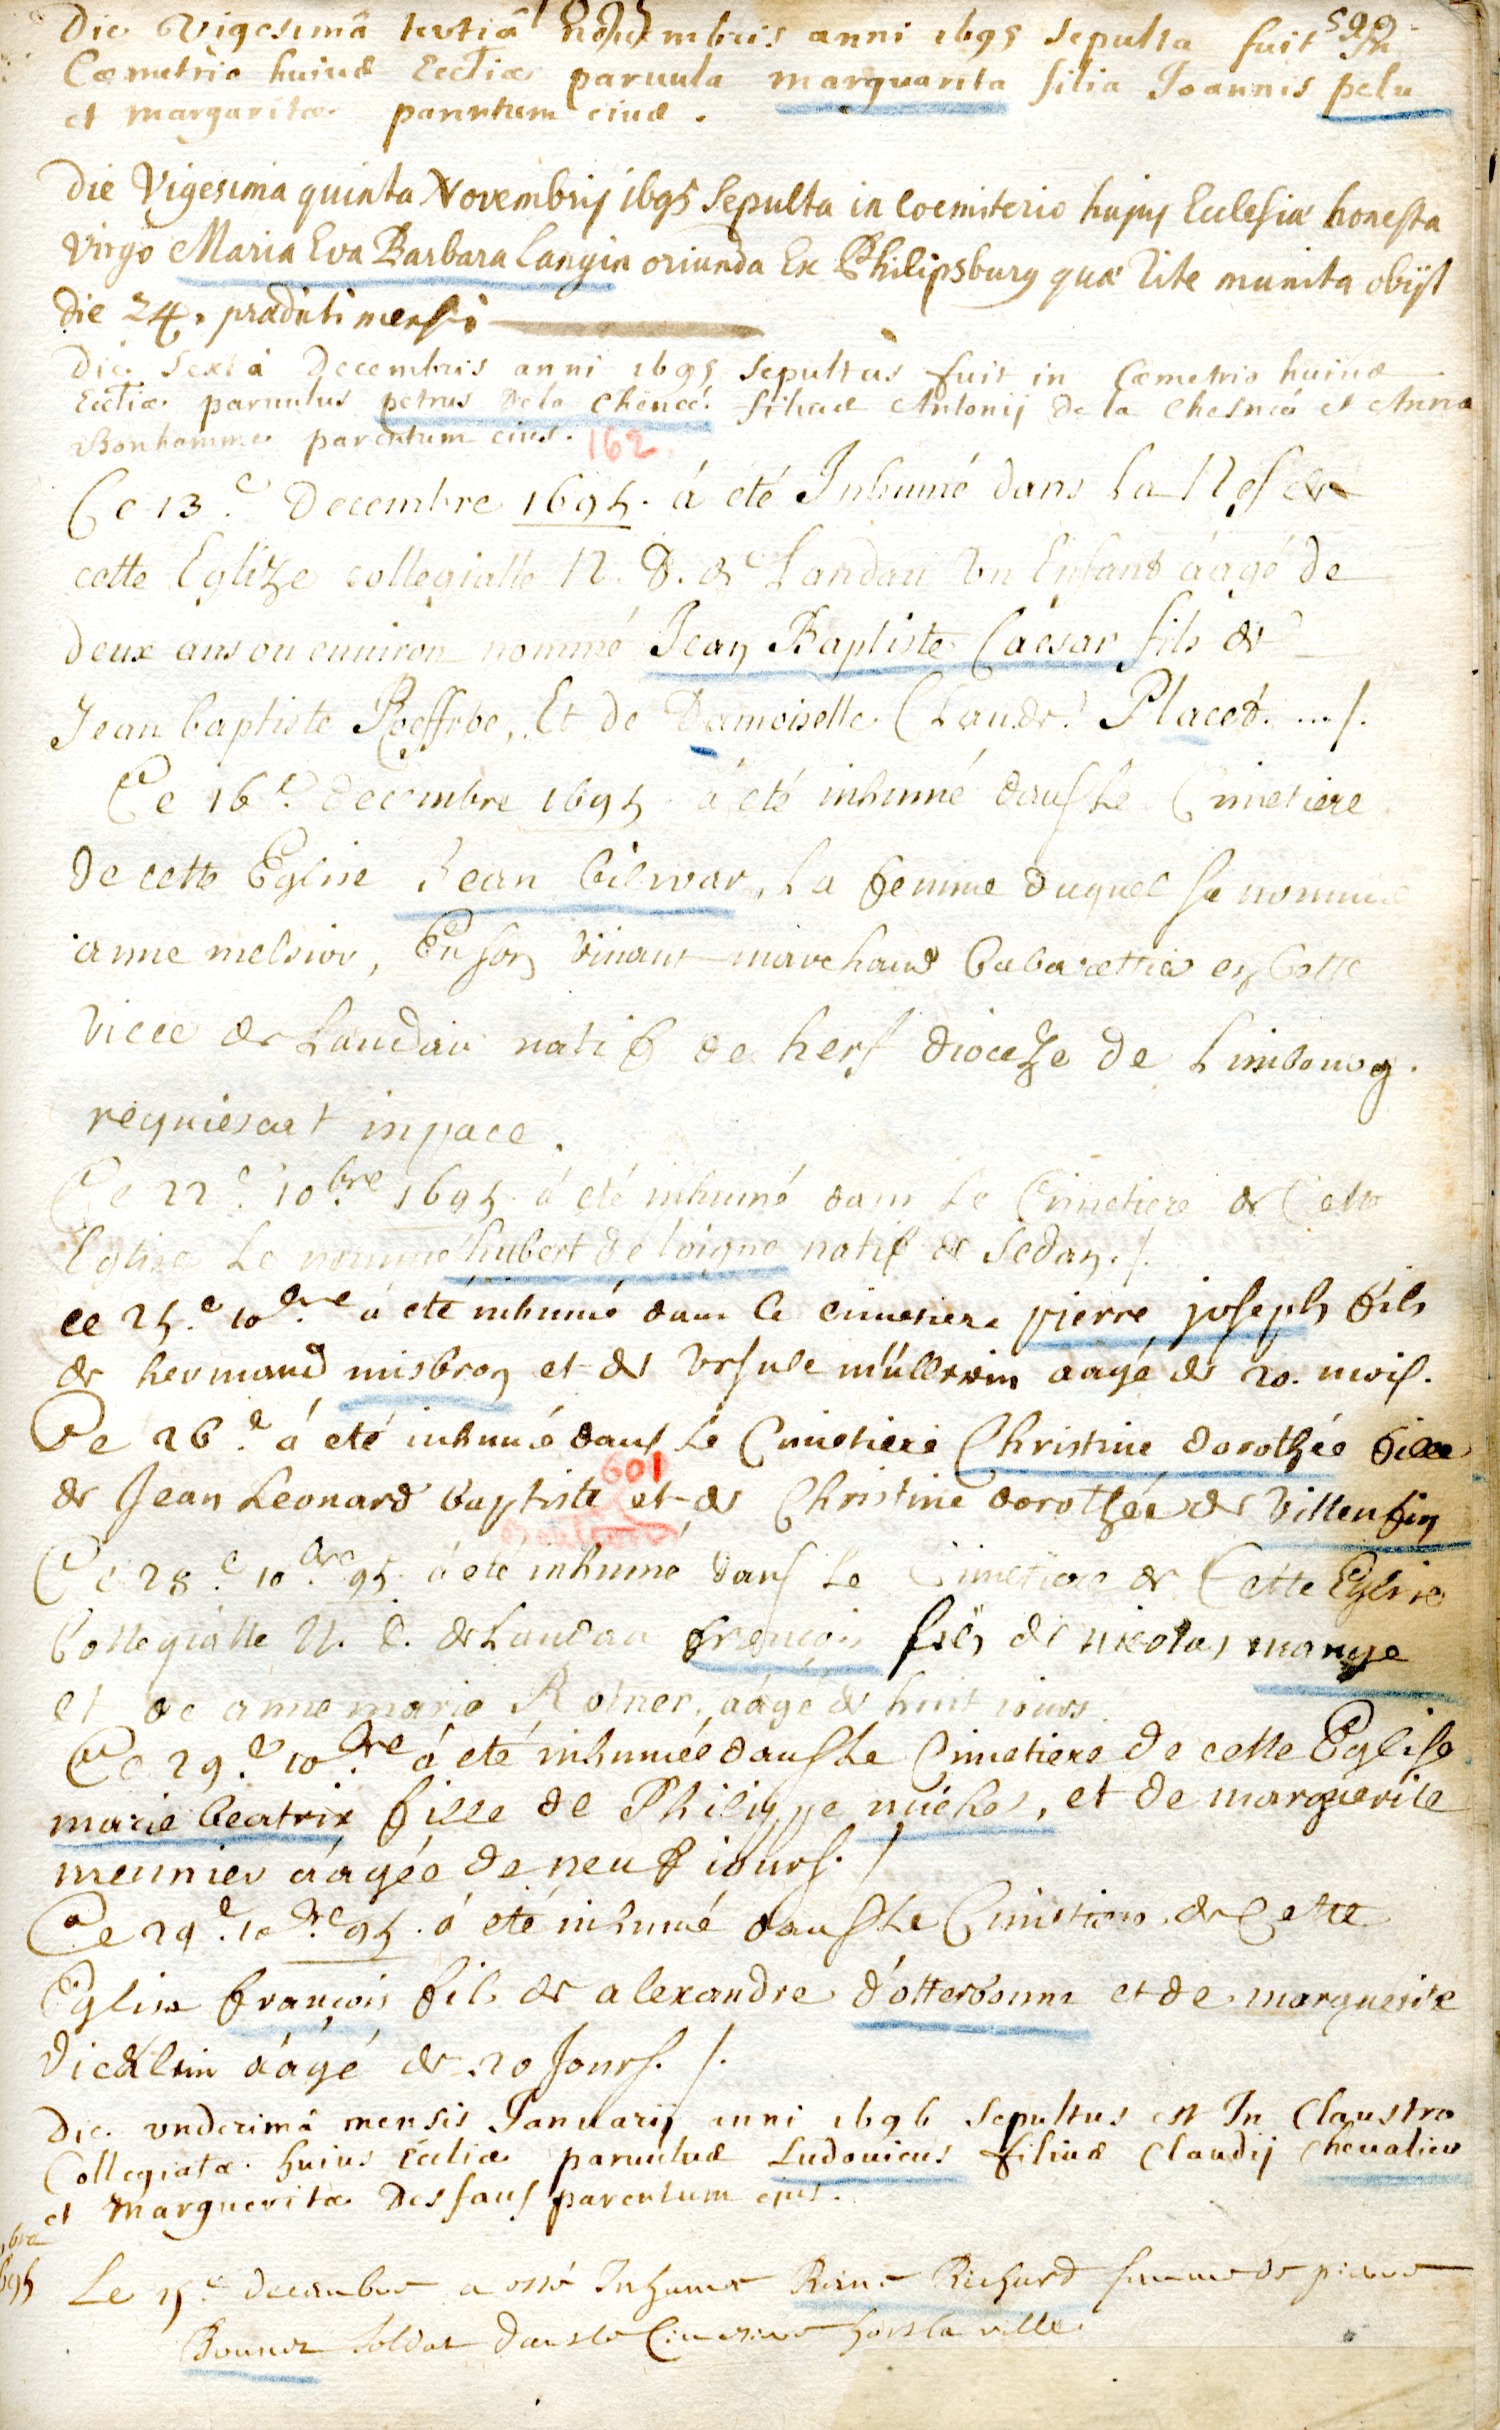 1695
599
Die Vigesimâ tertiâ novembris anni 1695 sepulta fuit In
Cœmetrio huius Eccliæ paruula marguarita filia Joannis pelu
et margaritæ parentum eius.
Die Vigesima quinta Novembrij 1695 Sepulta in Coemiterio hujuj Ecclesiæ honesta
Virgo Maria Eva Barbara Langin oriunda Ex Philipsburg quæ rite munita obijt
die 24. prædicti mensis
Die Sexta Decembris anni 1695 sepultus fuit in Cœmetrio huius
Eccliæ paruulus petrus de la Chencé filius Antonij de la Chesneé et Anna
Bonhomme parentum eius.
162
Ce 13.e Decembre 1695. á été Inhumé dans la Nef de
cette Eglize collegialle N. D. de Landau Vn Enfant áagé de
deux ans ou enuiron nommé Jean Baptiste Caesar fils de
Jean baptiste Et de Damoiselle Claude Placet. .../.
Ce 16.e decembre 1695 á été inhumé dans Le Cimetiere
de cette Eglise Jean Bilwar, La femme duquel se nomme
anne melsior, En son viuant marchand Cabarettier en Cette
Ville de Landau natif de herf diocesze de Limbourg.
requiescat in pace.
Ce 22.e 10.bre 1695 á été inhumé dans Le Cimetiere de Cette
Eglise Le nommé hubert de loigne natif de Sedan./.
ce 25.e 10.bre á eté inhumé dans le cimetiere pierre joseph fils
de hermand misbron et de Vrsule müllerin aagé de 20. mois.
Ce 26.e á été inhumé dans Le Cimetiere Christine dorothée fille
601
de Jean Leonard baptiste et de Christine dorothée de Villenfin
Ce 28.e 10.bre 95. á eté inhumé dans Le Cimetiere de Cette Eglise
Collegialle N. D. de Landau françois fils de nicolas mange
et de anne marie Rotner, áagé de huit iours
Ce 29.e 10.bre á eté inhumée dans Le Cimetiere de cette Eglise
marie beatrix fille de Philippe michel, et de marguerite
meunier áagée de neuf iours. /
Ce 29.e 10.bre 95. á eté inhumé dans Le Cimetiere de Cette
Eglise françois fils de alexandre d'otterbonne et de marguerite
dicklin áágé de 20 Jours. /.
Die vndecimâ mensis Januarij anni 1696 sepultus est In Claustro
Collegiatæ huius Eccliæ paruulus Ludouicus filius Claudij Cheualier
et Margueritæ Desfaus parentum ejus.
bre
695
Le 15.e decembre a esté Inhumée Reine Richard femme de pierre
Bonnet Soldat dans le Cimetiere hors la ville